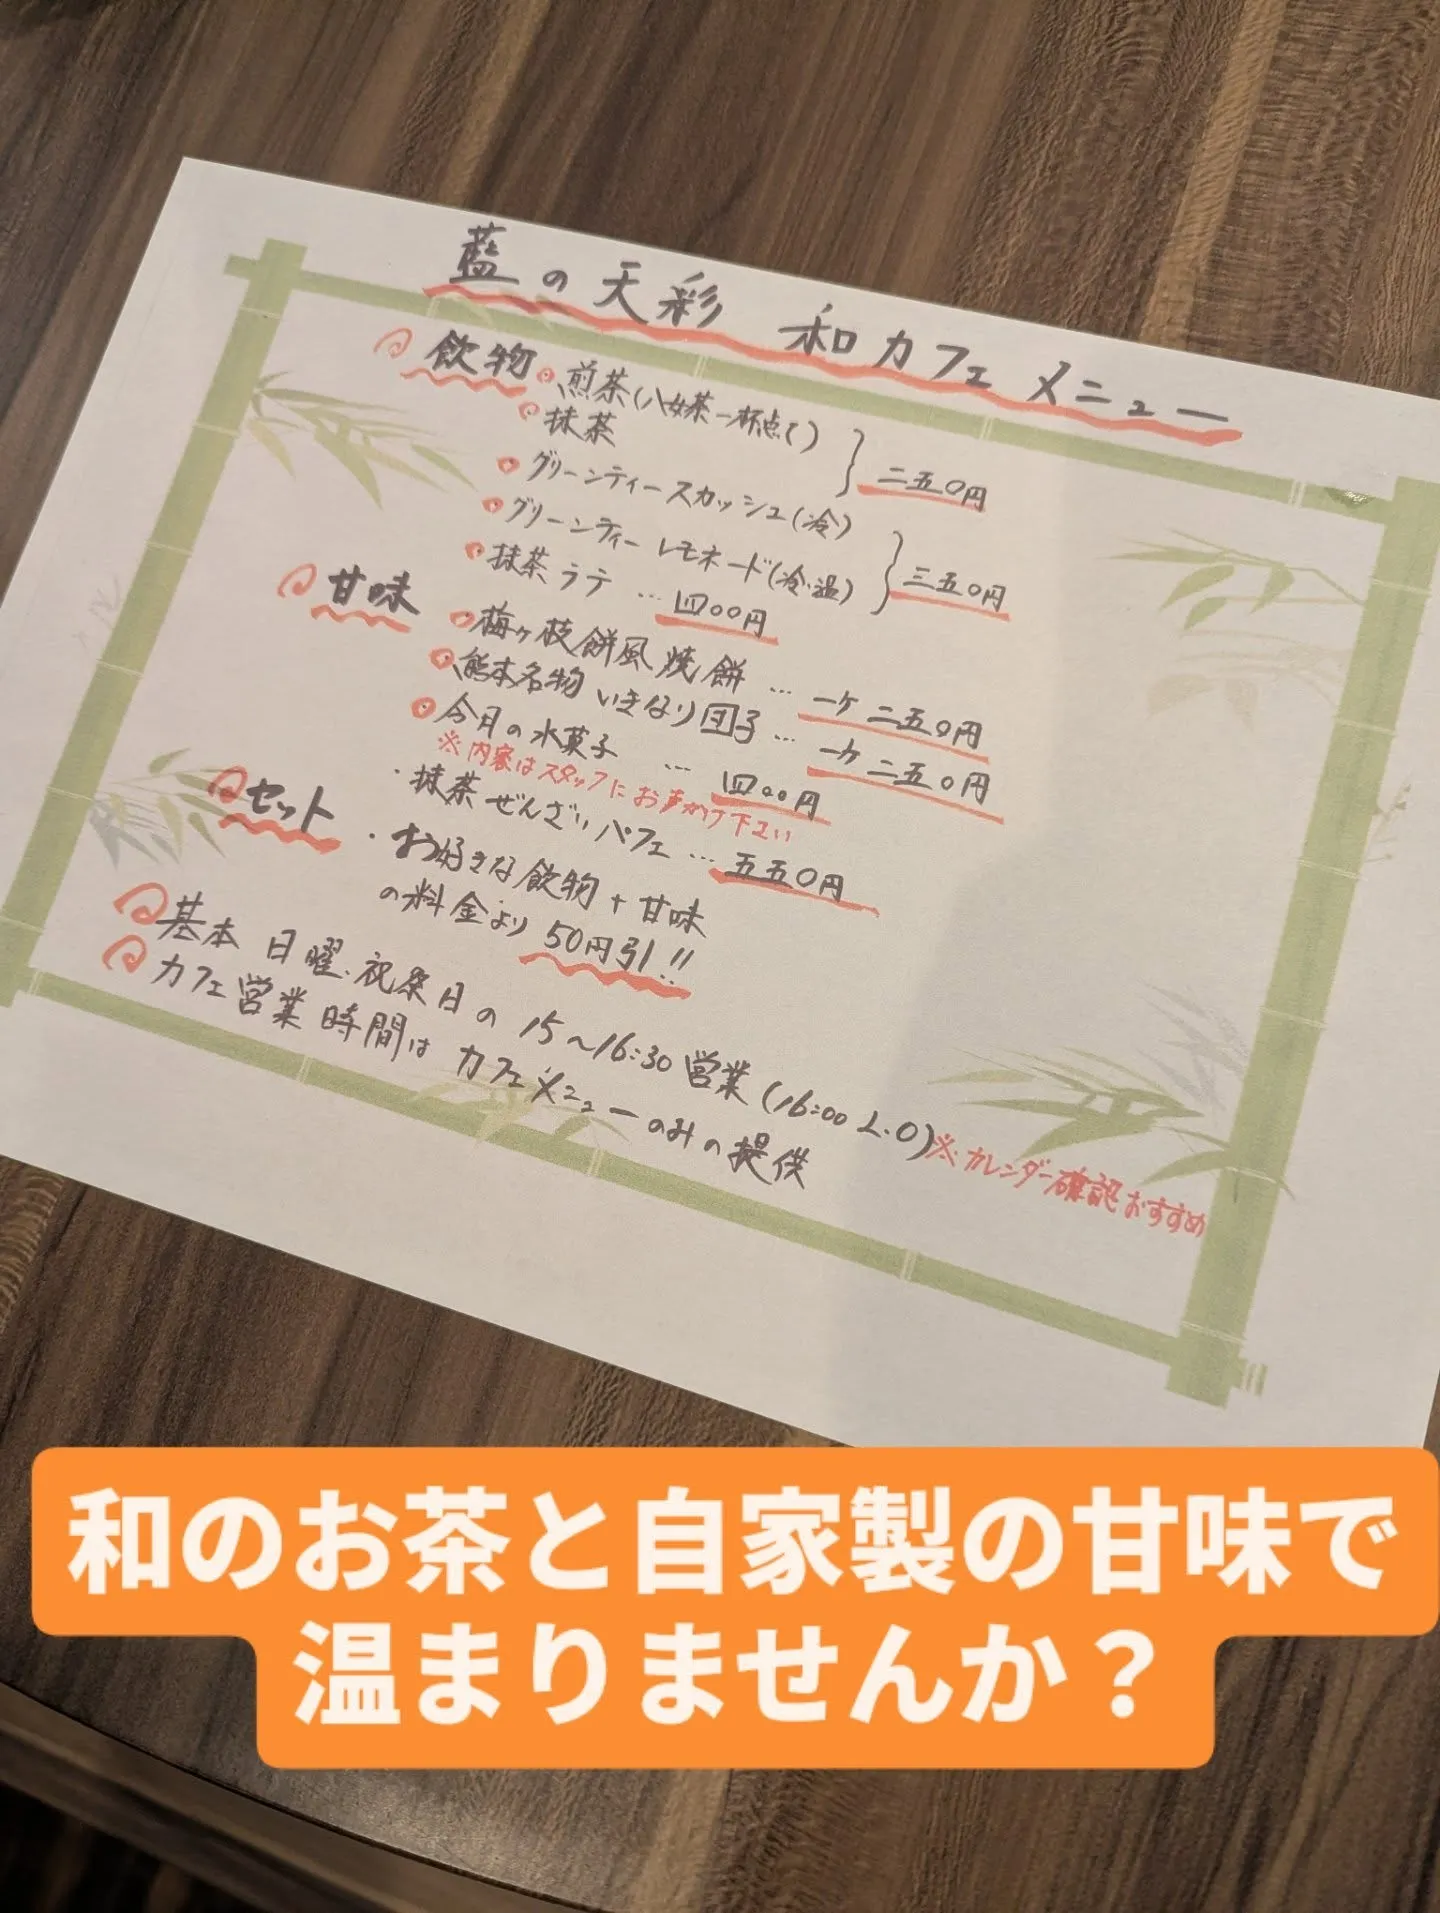 藍の天彩 和カフェ メニュー
飲物
煎茶(八女茶一杯点て)
抹茶
二五〇円
グリーンティースカッシュ(冷)
グリーンティー レモネード(冷・温)
三五〇円
抹茶ラテ … 四〇〇円
甘味
梅ヶ枝餅風焼餅 … 一ケ 二五〇円
熊本名物 いきなり団子 … 一ケ 二五〇円
今月の水菓子 … 四〇〇円
※内容はスタッフにお声かけ下さい
・抹茶ぜんざいパフェ … 五五〇円
セット
・お好きな飲物+甘味
の料金より 50円引!!
基本 日曜、祝祭日の 15〜16:30 営業(16:00 L.O)※カレンダー確認おすすめ
カフェ営業時間は カフェメニューのみの提供
和のお茶と自家製の甘味で
温まりませんか?